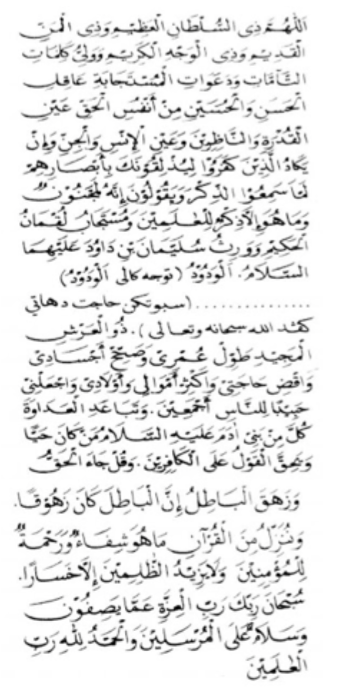 اَللّٰهُمَّ ذِى السُّلْطَانِ الْعَظِيْمِ وَذِى الْمَنِّ
الْقَدِيْمِ وَذِى الْوَجْهِ الْكَرِيْمِ وَوَلِىِّ كَلِمَاتِ
التَّامَّاتِ وَدَعَوَاتِ الْمُسْتَجَابَةِ عَاقِلِ
الْحَسَنِ وَالْحُسَيْنِ مِنْ اَنْفُسِ الْحَقِّ عَيْنِ
الْقُدْرَةِ وَالنَّاظِرِيْنَ وَعَيْنِ الْاِنْسِ وَالْجِنِّ وَاِنْ
يَكَادُ الَّذِيْنَ كَفَرُوْا لَيُزْلِقُوْنَكَ بِاَبْصَارِهِمْ
لَمَّا سَمِعُوا الذِّكْرَ وَيَقُوْلُوْنَ اِنَّهُ لَمَجْنُوْنٌ
وَمَا هُوَ اِلَّا ذِكْرٌ لِلْعٰلَمِيْنَ وَمُسْتَجَابُ لُقْمَانَ
الْحَكِيْمِ وَوَرِثَ سُلَيْمَانُ بْنُ دَاوُدَ عَلَيْهِمَا
السَّلَامُ. اَلْوَدُوْدُ (توجه كالى اَلْوَدُوْدُ)
.................... (سبوتكن حاجت دهاتي
كفد الله سبحانه وتعالى). ذُو الْعَرْشِ
الْمَجِيْدِ طَوِّلْ عُمْرِىْ وَصَحِّحْ اَجْسَادِىْ
وَاقْضِ حَاجَتِىْ وَاَكْثِرْ اَمْوَالِىْ وَاَوْلَادِىْ وَاجْعَلْنِىْ
حَبِيْبًا لِلنَّاسِ اَجْمَعِيْنَ. وَتَبَاعَدِ الْعَدَاوَةَ
كُلَّ مِنْ بَنِىْ اٰدَمَ عَلَيْهِ السَّلَامُ مَنْ كَانَ حَيًّا
وَيَحِقَّ الْقَوْلُ عَلَى الْكَافِرِيْنَ. وَقُلْ جَاءَ الْحَقُّ
وَزَهَقَ الْبَاطِلُ اِنَّ الْبَاطِلَ كَانَ زَهُوْقًا.
وَنُنَزِّلُ مِنَ الْقُرْآنِ مَا هُوَ شِفَاءٌ وَرَحْمَةٌ
لِلْمُؤْمِنِيْنَ وَلَا يَزِيْدُ الظّٰلِمِيْنَ اِلَّا خَسَارًا.
سُبْحَانَ رَبِّكَ رَبِّ الْعِزَّةِ عَمَّا يَصِفُوْنَ
وَسَلَامٌ عَلَى الْمُرْسَلِيْنَ وَالْحَمْدُ لِلّٰهِ رَبِّ
الْعٰلَمِيْنَ